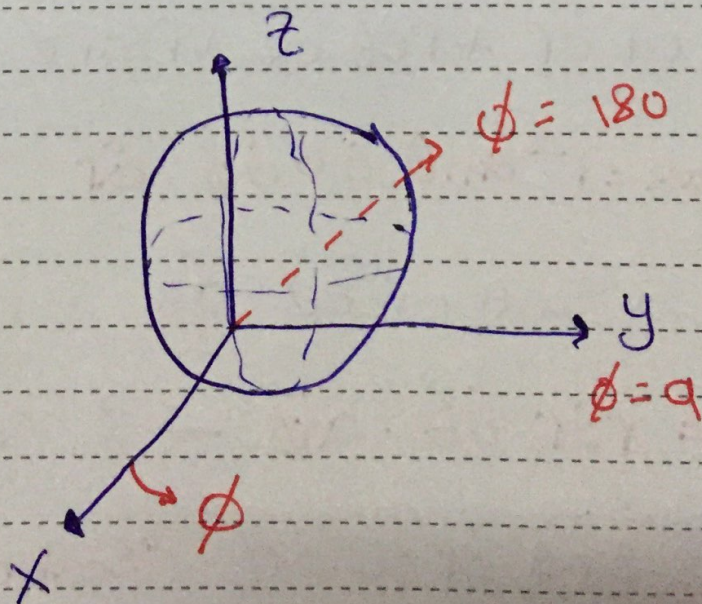 z
ϕ = 180
y
ϕ = 9
ϕ
x